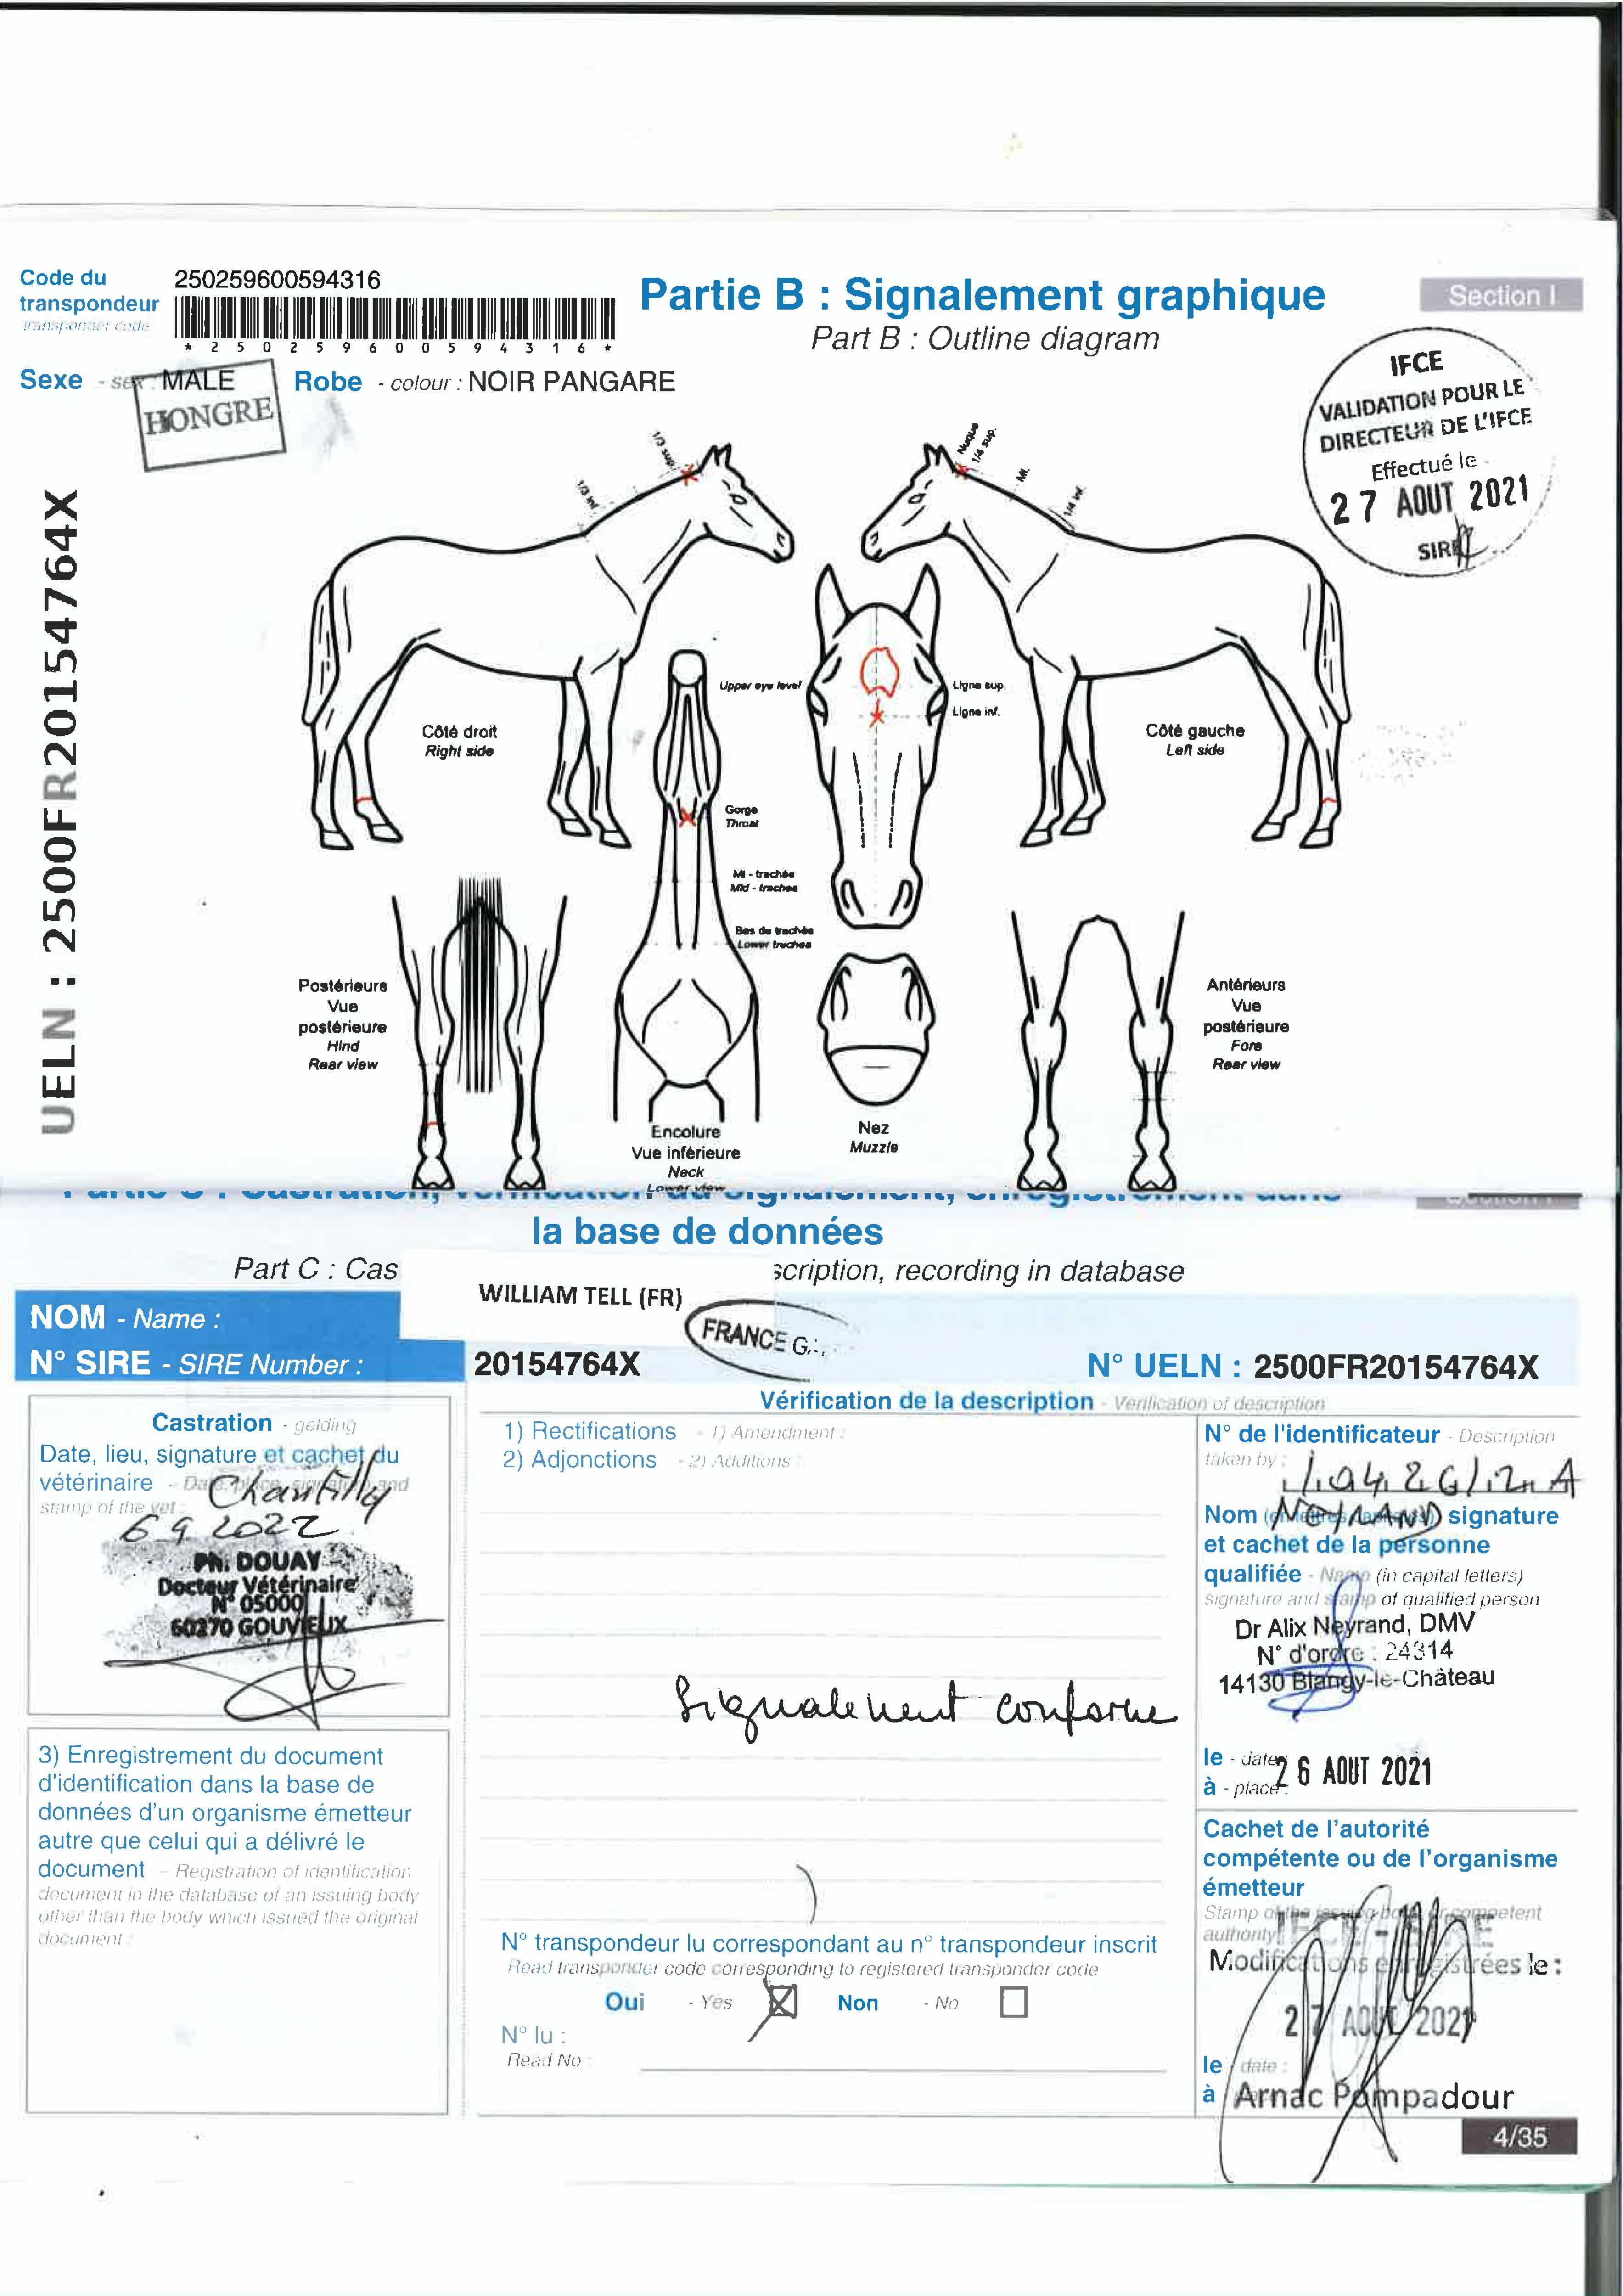 Code du
transpondeur
transponder code
250259600594316
* 2 5 0 2 5 9 6 0 0 5 9 4 3 1 6 *
Partie B : Signalement graphique
Part B : Outline diagram
Section I
Sexe - sex : MALE
HONGRE
Robe - colour : NOIR PANGARE
IFCE
VALIDATION POUR LE
DIRECTEUR DE L'IFCE
Effectué le
27 AOUT 2021
SIRE
UELN : 2500FR20154764X
1/3 sup.
1/3 inf.
Nuque
1/4 sup.
Mi.
1/4 inf.
Upper eye level
Ligne sup.
Ligne inf.
Côté droit
Right side
Côté gauche
Left side
Gorge
Throat
Mi - trachée
Mid - trachea
Bas de trachée
Lower trachea
Postérieurs
Vue
postérieure
Hind
Rear view
Antérieurs
Vue
postérieure
Fore
Rear view
Encolure
Vue inférieure
Neck
Lower view
Nez
Muzzle
la base de données
Part C : Cas
scription, recording in database
NOM - Name :
WILLIAM TELL (FR)
FRANCE G
N° SIRE - SIRE Number :
20154764X
N° UELN : 2500FR20154764X
Vérification de la description - Verification of description
Castration - gelding
Date, lieu, signature et cachet du
vétérinaire - Date, place, signature and
stamp of the vet :
Chantilly
6 9 2022
Ph. DOUAY
Docteur Vétérinaire
N° 05000
60270 GOUVIEUX
1) Rectifications - 1) Amendment :
2) Adjonctions - 2) Additions :
Signalement conforme
N° de l'identificateur - Description
taken by :
Nom signature
et cachet de la personne
qualifiée - Name (in capital letters)
signature and stamp of qualified person
Dr Alix Neyrand, DMV
N° d'ordre : 24314
14130 Blangy-le-Château
le - date
à - place :
26 AOUT 2021
3) Enregistrement du document
d'identification dans la base de
données d'un organisme émetteur
autre que celui qui a délivré le
document - Registration of identification
document in the database of an issuing body
other than the body which issued the original
document :
N° transpondeur lu correspondant au n° transpondeur inscrit
Read transponder code corresponding to registered transponder code
Oui - Yes
Non - No
N° lu :
Read No :
Cachet de l'autorité
compétente ou de l'organisme
émetteur
Stamp of the issuing body or competent
authority
Modifications enregistrées le :
27 AOUT 2021
le date :
à Arnac Pompadour
4/35